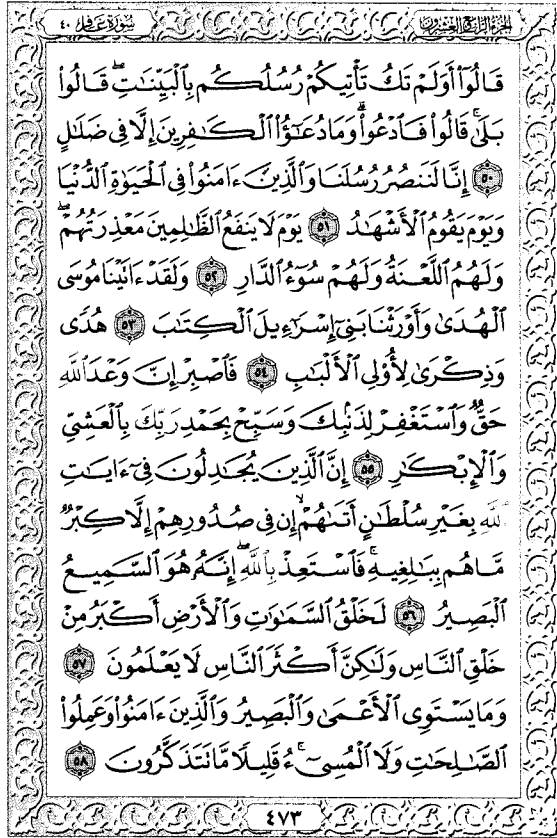 سورة غافر ٤٠
الجزء الرابع والعشرون
قَالُوٓا۟ أَوَلَمْ تَكُ تَأْتِيكُمْ رُسُلُكُم بِٱلْبَيِّنَٰتِ ۖ قَالُوا۟
بَلَىٰ ۚ قَالُوا۟ فَٱدْعُوا۟ ۗ وَمَا دُعَٰٓؤُا۟ ٱلْكَٰفِرِينَ إِلَّا فِى ضَلَٰلٍ
٥٠ إِنَّا لَنَنصُرُ رُسُلَنَا وَٱلَّذِينَ ءَامَنُوا۟ فِى ٱلْحَيَوٰةِ ٱلدُّنْيَا
وَيَوْمَ يَقُومُ ٱلْأَشْهَٰدُ ٥١ يَوْمَ لَا يَنفَعُ ٱلظَّٰلِمِينَ مَعْذِرَتُهُمْ ۖ
وَلَهُمُ ٱللَّعْنَةُ وَلَهُمْ سُوٓءُ ٱلدَّارِ ٥٢ وَلَقَدْ ءَاتَيْنَا مُوسَى
ٱلْهُدَىٰ وَأَوْرَثْنَا بَنِىٓ إِسْرَٰٓءِيلَ ٱلْكِتَٰبَ ٥٣ هُدًى
وَذِكْرَىٰ لِأُو۟لِى ٱلْأَلْبَٰبِ ٥٤ فَٱصْبِرْ إِنَّ وَعْدَ ٱللَّهِ
حَقٌّ وَٱسْتَغْفِرْ لِذَنۢبِكَ وَسَبِّحْ بِحَمْدِ رَبِّكَ بِٱلْعَشِىِّ
وَٱلْإِبْكَٰرِ ٥٥ إِنَّ ٱلَّذِينَ يُجَٰدِلُونَ فِىٓ ءَايَٰتِ
ٱللَّهِ بِغَيْرِ سُلْطَٰنٍ أَتَىٰهُمْ ۙ إِن فِى صُدُورِهِمْ إِلَّا كِبْرٌ
مَّا هُم بِبَٰلِغِيهِ ۚ فَٱسْتَعِذْ بِٱللَّهِ ۖ إِنَّهُۥ هُوَ ٱلسَّمِيعُ
ٱلْبَصِيرُ ٥٦ لَخَلْقُ ٱلسَّمَٰوَٰتِ وَٱلْأَرْضِ أَكْبَرُ مِنْ
خَلْقِ ٱلنَّاسِ وَلَٰكِنَّ أَكْثَرَ ٱلنَّاسِ لَا يَعْلَمُونَ ٥٧
وَمَا يَسْتَوِى ٱلْأَعْمَىٰ وَٱلْبَصِيرُ وَٱلَّذِينَ ءَامَنُوا۟ وَعَمِلُوا۟
ٱلصَّٰلِحَٰتِ وَلَا ٱلْمُسِىٓءُ ۚ قَلِيلًا مَّا تَتَذَكَّرُونَ ٥٨
٤٧٣